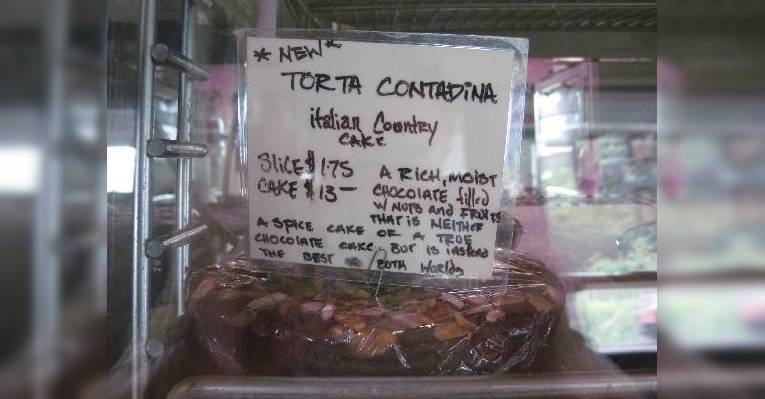 * NEW *
TORTA CONTADINA
italian Country
CAKE
SLICE $1.75
CAKE $13—
A RICH, MOIST
CHOCOLATE filled
W NUTS AND FRUITS
THAT IS NEITHER
A SPICE CAKE OR A TRUE
CHOCOLATE CAKE, BUT IS INSTEAD
THE BEST BOTH WORLDS